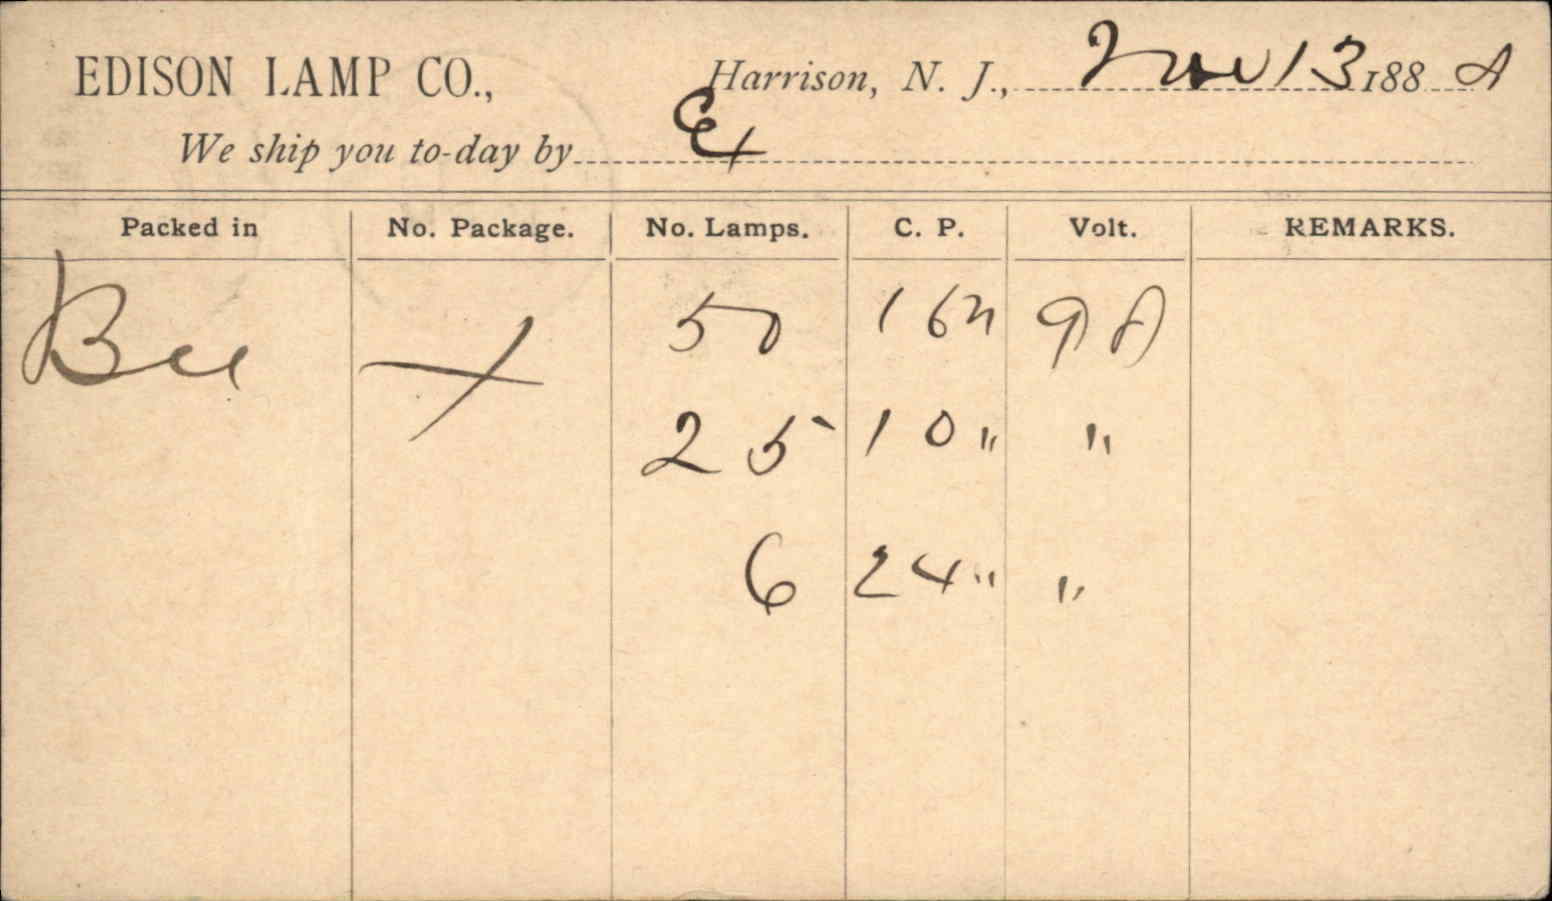 EDISON LAMP CO., Harrison, N. J., Nov 13 1888
We ship you to-day by Ex
Packed in No. Package. No. Lamps. C. P. Volt. REMARKS.
50 16 98
25 10 " "
6 24 " "